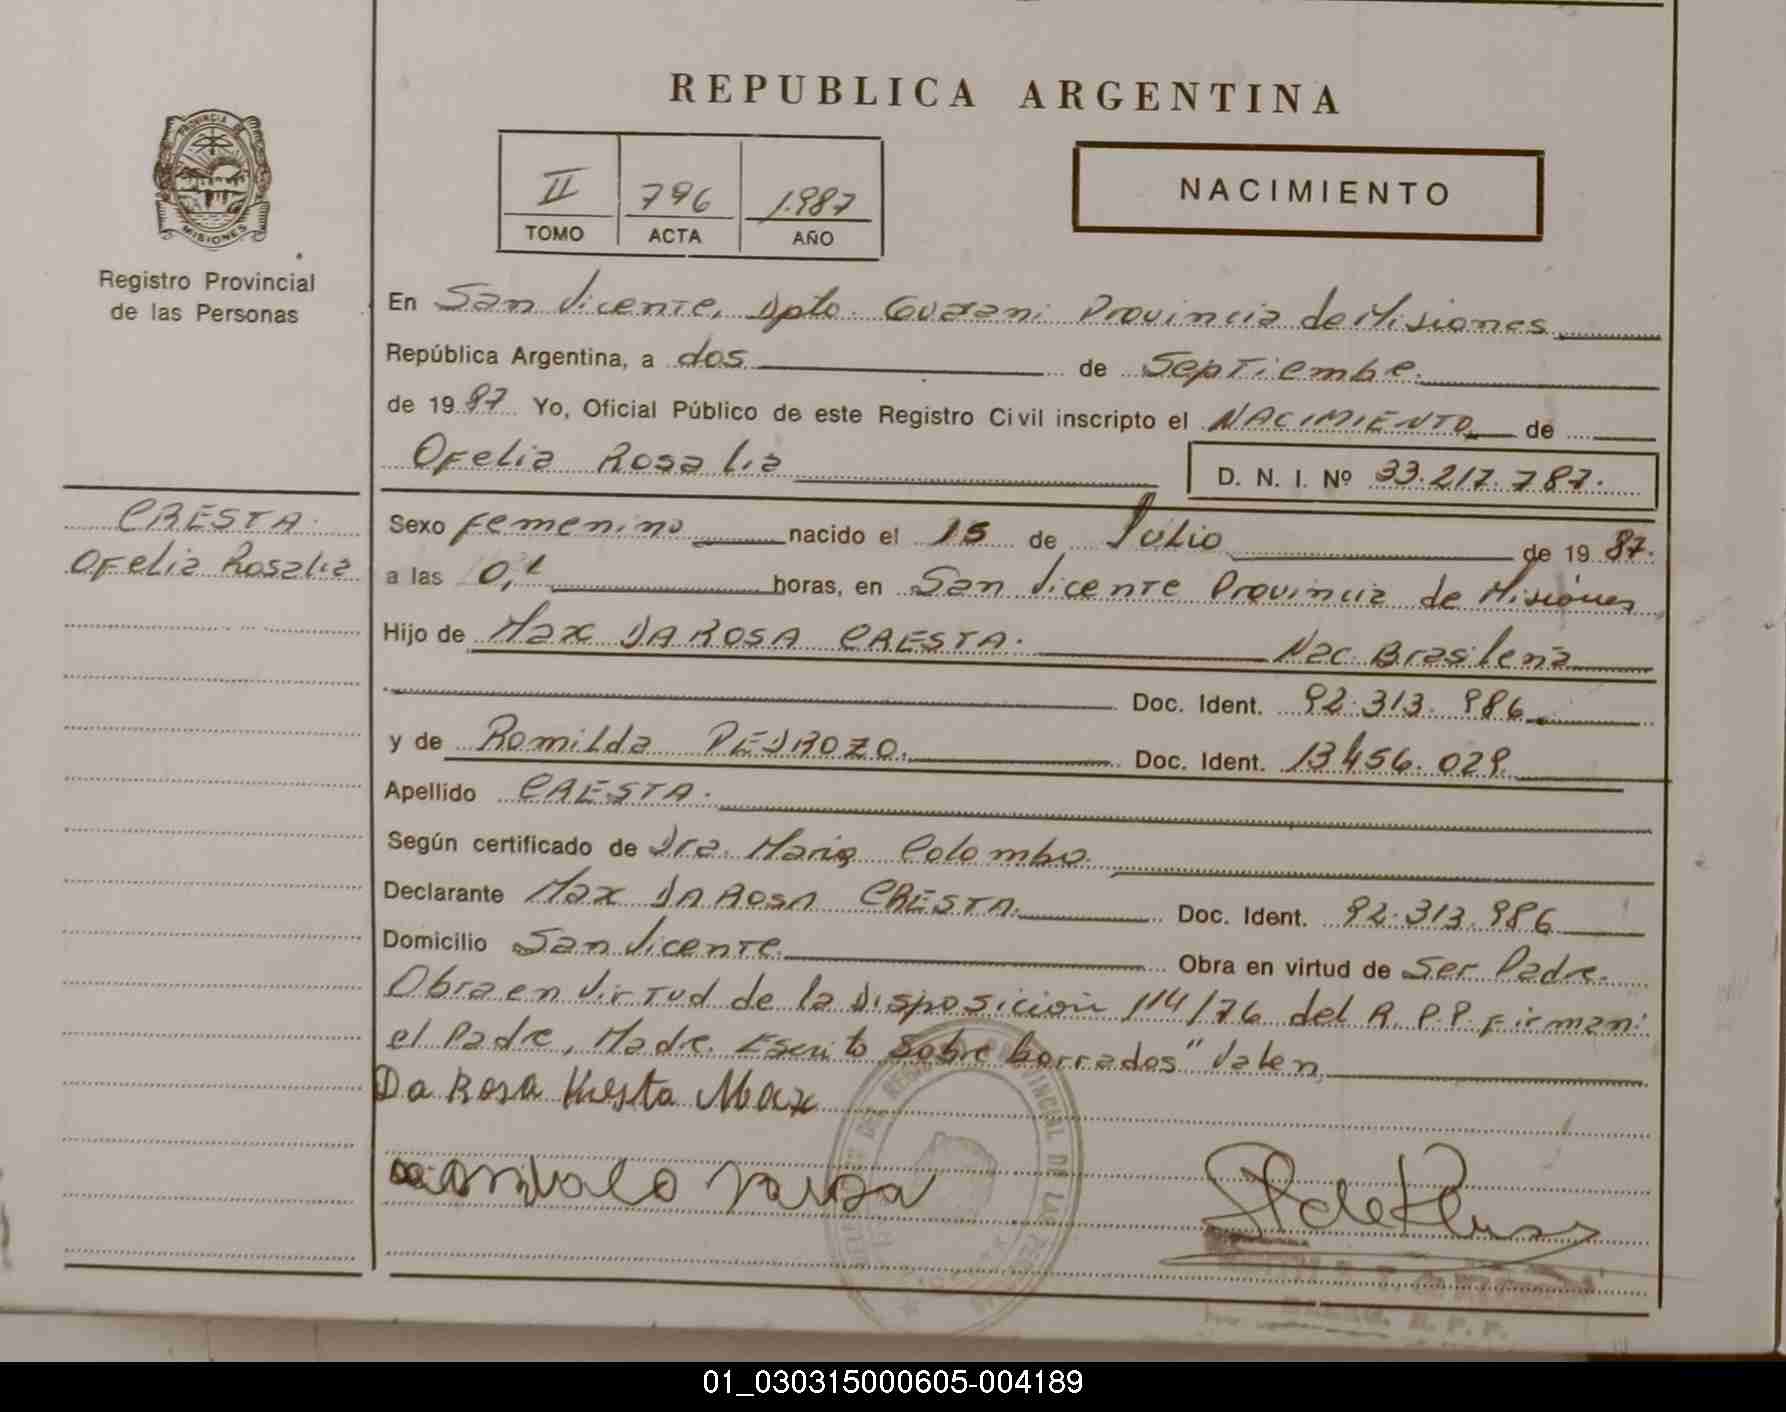 REPUBLICA ARGENTINA
PROVINCIA DE
MISIONES
Registro Provincial
de las Personas
II 796 1.987
TOMO ACTA AÑO
NACIMIENTO
En San Vicente, Dpto. Guarani Provincia de Misiones
República Argentina, a dos de Septiembre.
de 19 87 Yo, Oficial Público de este Registro Civil inscripto el NACIMIENTO de
Ofelia Rosalia D. N. I. Nº 33.217.787.
CRESTA.
Ofelia Rosalia
Sexo femenino nacido el 15 de Julio de 19 87.
a las 0,1 horas, en San Vicente Provincia de Misiones
Hijo de Max DA ROSA CRESTA. Nac. Brasileña
Doc. Ident. 92.313.986
y de Romilda PEDROZO. Doc. Ident. 13.456.029
Apellido CRESTA.
Según certificado de Dra. Maria Colombo.
Declarante Max DA ROSA CRESTA. Doc. Ident. 92.313.986
Domicilio San Vicente. Obra en virtud de Ser Padre.
Obra en virtud de la Disposicion 114/76 del R.P.P. Firman:
el Padre, Madre. Escrito "Sobre borrados" Valen
Da Rosa Max
PROVINCIAL DE LAS
R. P. P.
01_030315000605-004189